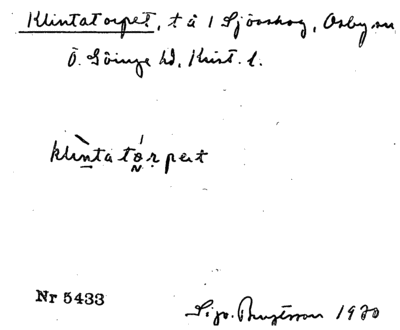 Klintatorpet, t å 1 Sjöoskog, Osby sn,
Ö. Göinge hd, Krist. l.
klìntató̤r̥pet
Nr 5433
Sigv. Bengtsson 1970